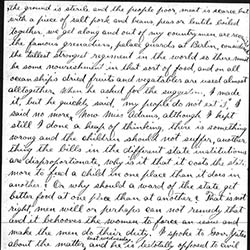 the ground is sterile and the people poor, meat is scarce but
with a piece of salt pork and beans peas or lentils boiled
together we get along and out of my country men are
the famous grenadiers, palace guards at Berlin,
the tallest strongest regiment in the world so there must
be some nourishment in that sort of food, and in all
ocean ships dried fruits and vegetables are used almost
alltogether. When he asked for the suggestion, I made
it, but he quickly said, "my people do not eat 's," I
said no more, Now Miss Adams, although I kept
still I done a heap of thinking, there is something
wrong and the children should not suffer, another
thing the bills in the different state institutions
are disproportionate, why is it that it costs the state
more to feed a child in one place than it does in
another? Or why should a ward of the state get
better food at one place than at another? That is not
right men will or perhaps can not remedy this
and it behooves the women to force an issue and
make the men do their duty. I spoke to Gov.
about the matter, and he is totally opposed to